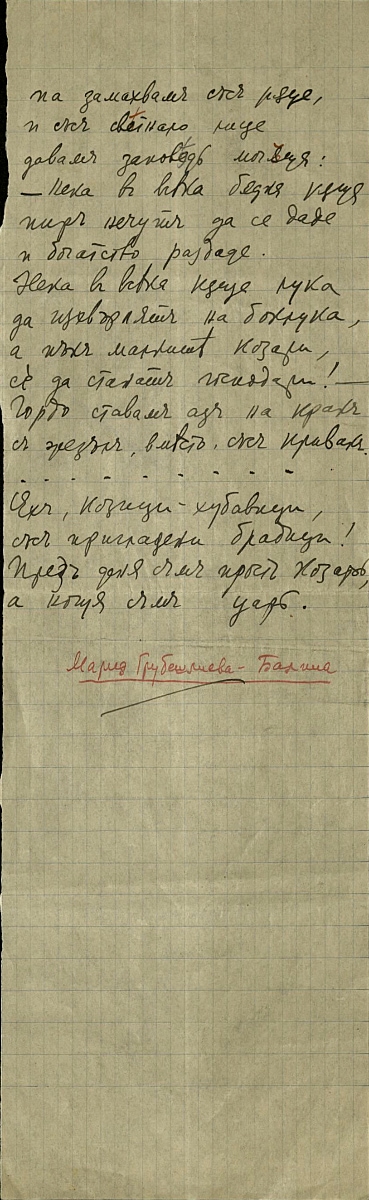 па замахвамъ съсъ ржце,
и съсъ свѣтнало лице
давамъ заповѣдь могѫща:
— Нека въ всѣка бедна кѫща
пиръ нечутъ да се даде
и богатство раздаде.
Нека въ всѣка кѫща лука
да изхвърлятъ на боклука,
а пъкъ малкитѣ козари,
сѐ да станатъ господари! —
Гордо ставамъ азъ на кракъ
съ жезълъ, вмѣсто, съсъ кривакъ.
. . . . . . . . . .
Ехъ, козици - хубавици,
съсъ пригладени брадици!
Презъ деня съмъ простъ козарь,
а нощя съмъ царь.
Мария Грубешлиева - Балина